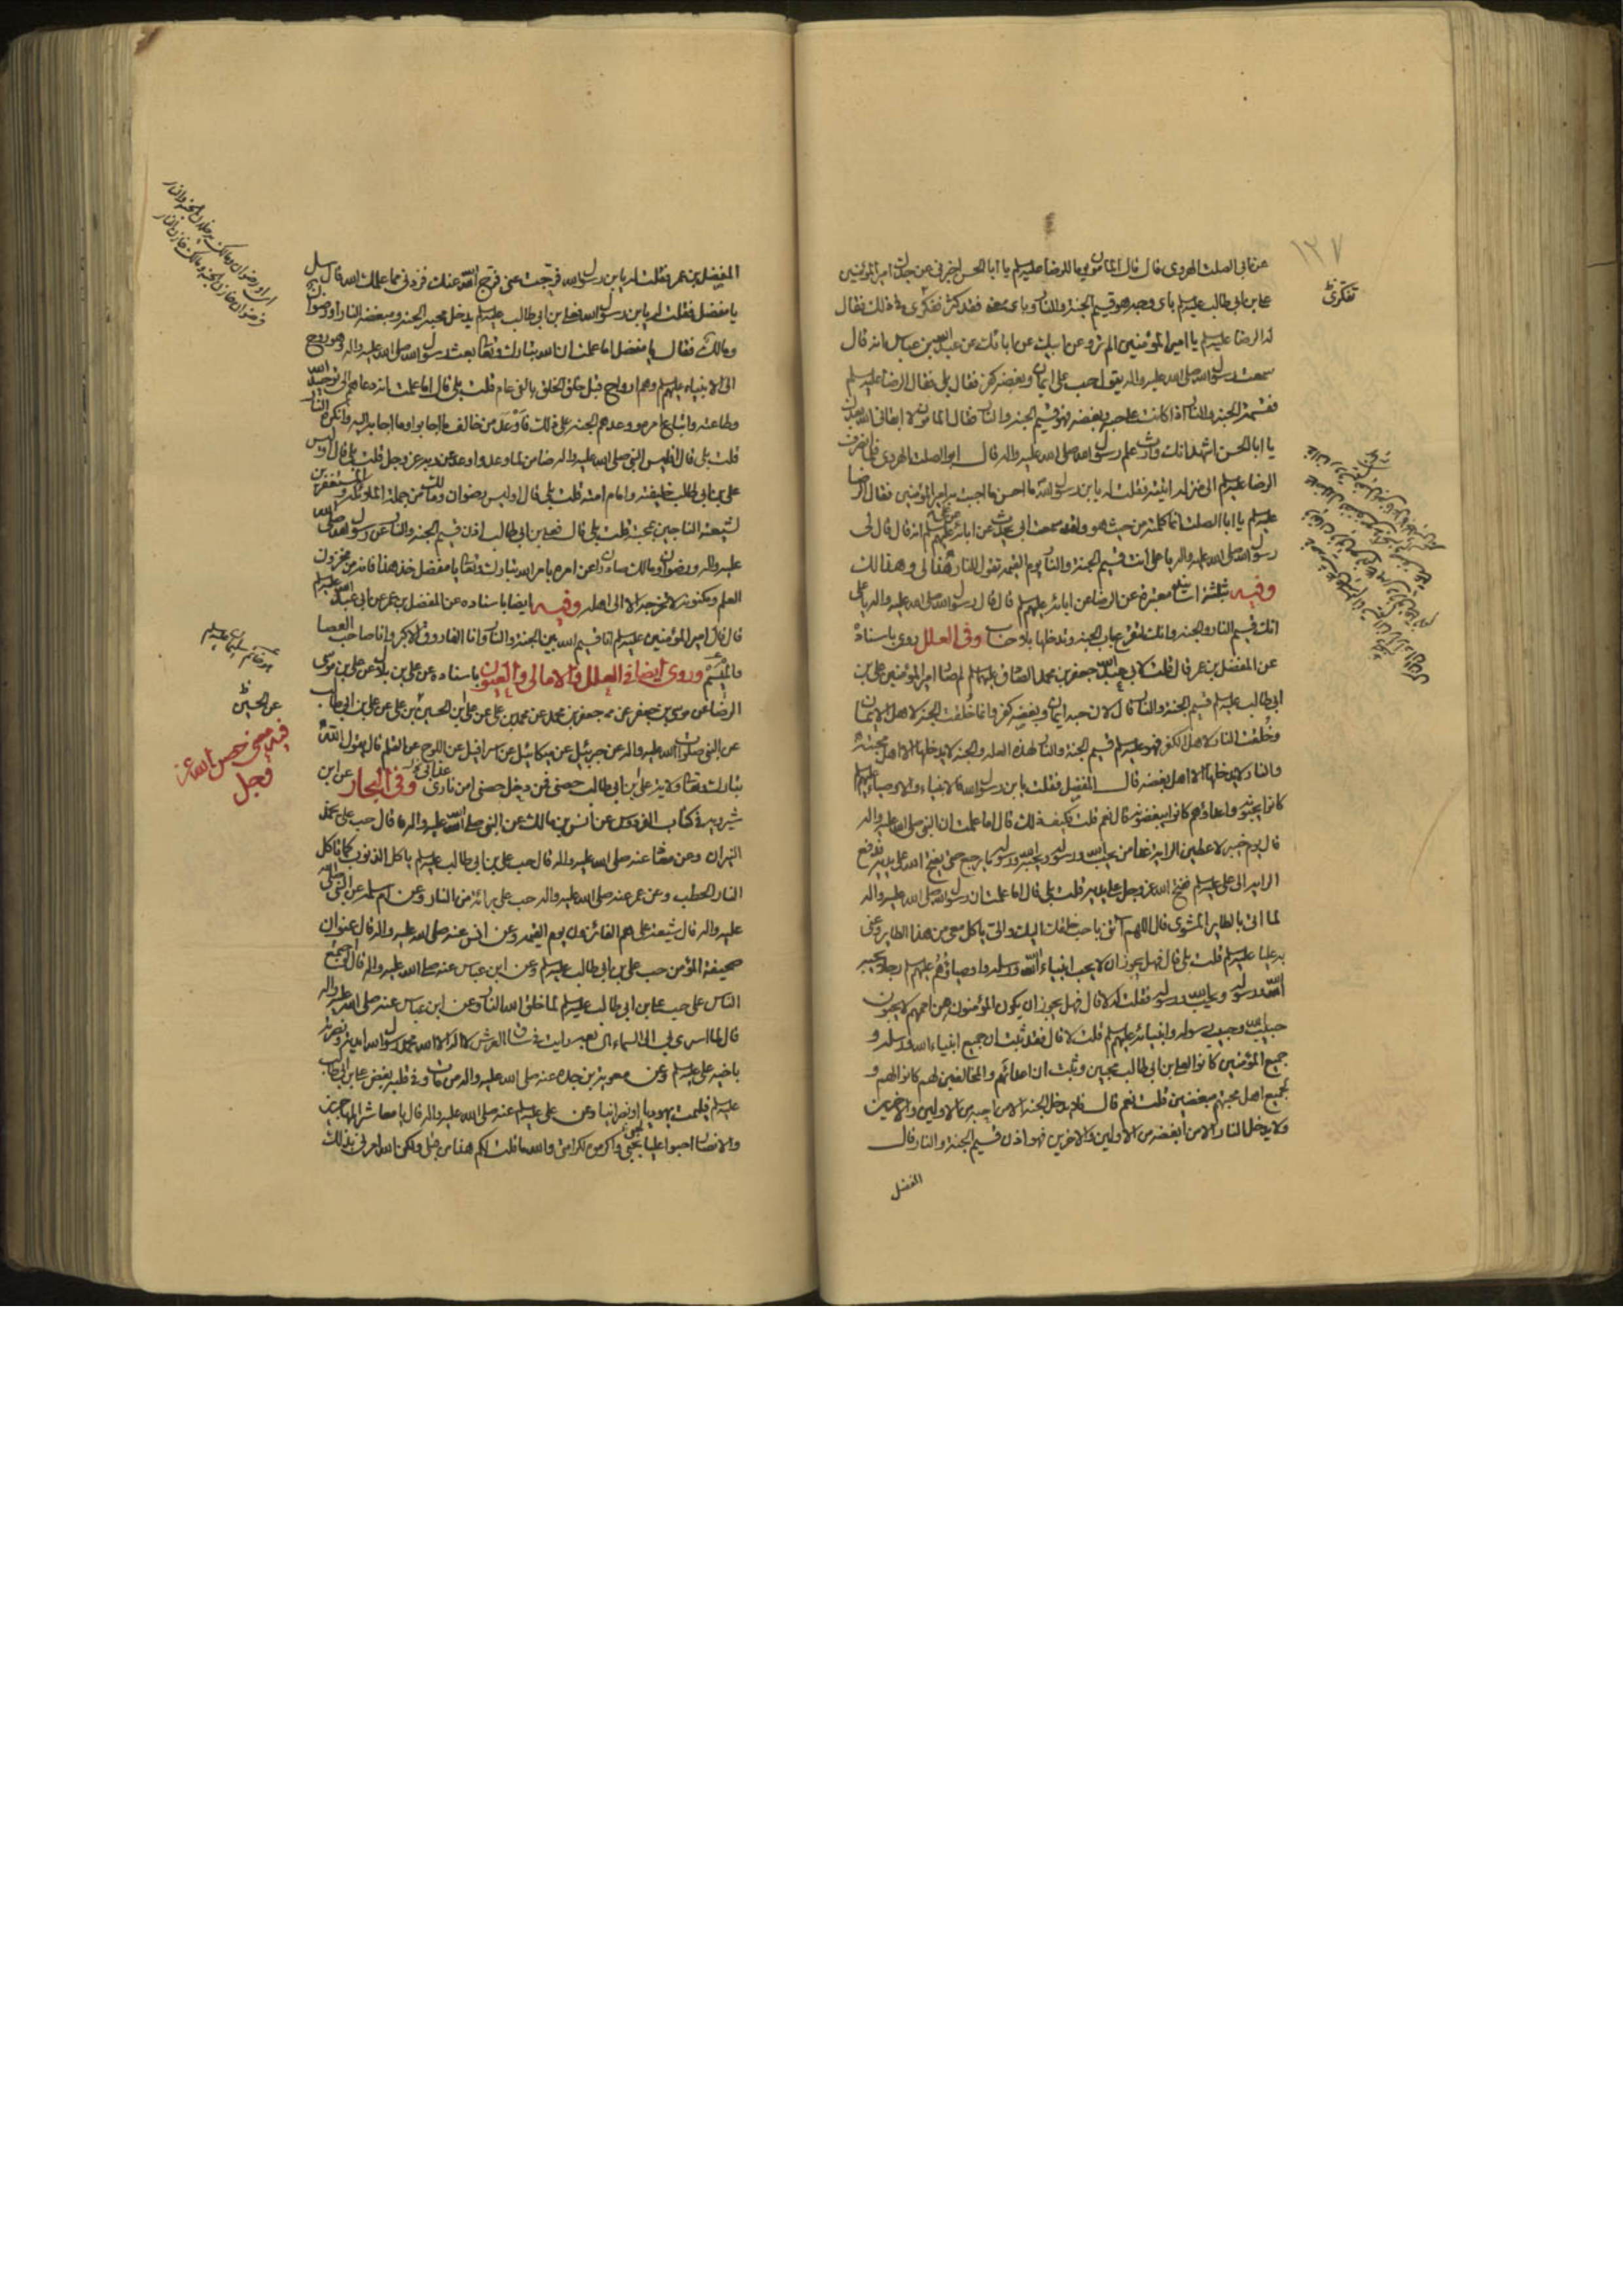 ١٣٧
عن ابى الصلت الهروى قال قال المامون يوما للرضا عليه السلم يا ابا الحسن اخبرنى عن جدك امير المؤمنين
على بن ابى طالب عليه السلم باى وجه هو قسيم الجنة والنار وباى معنى فقد كثر فكرى فى ذلك فقال
تفكرى
له الرضا عليه السلم يا امير المؤمنين الم ترو عن ابيك عن ابائك عن عبد الله بن عباس انه قال
سمعت رسول الله صلى الله عليه واله يقول حب على ايمان وبغضه كفر فقال بلى فقال الرضا عليه السلم
فقسمة الجنة والنار اذا كانت على حبه وبغضه فهو قسيم الجنة والنار فقال المامون لا ابقانى الله بعدك
يا ابا الحسن اشهد انك وارث علم رسول الله صلى الله عليه واله قال ابو الصلت الهروى فلما انصرف
الرضا عليه السلم الى منزله اتيته فقلت له يا بن رسول الله ما احسن ما اجبت به امير المؤمنين فقال الرضا
عليه السلم يا ابا الصلت انما كلمته من حيث هو ولقد سمعت ابى يحدث عن ابائه عن على عليهم السلم انه قال قال لى
رسول الله صلى الله عليه واله يا على انت قسيم الجنة والنار يوم القيمة تقول للنار هذا لى وهذا لك
وفيه بثلثة اسانيد معتبرة عن الرضا عن ابائه عليهم السلم قال قال رسول الله صلى الله عليه واله يا على
انك قسيم النار والجنة وانك لتقرع باب الجنة وتدخلها بلا حساب وفى العلل روى باسناده
عن المفضل بن عمر قال قلت لابى عبد الله جعفر بن محمد الصادق عليهما السلم لم صار امير المؤمنين على بن
ابى طالب عليه السلم قسيم الجنة والنار قال لان حبه ايمان وبغضه كفر وانما خلقت الجنة لاهل الايمان
وخلقت النار لاهل الكفر فهو عليه السلم قسيم الجنة والنار لهذه العلة والجنة لا يدخلها الا اهل محبته
والنار لا يدخلها الا اهل بغضه قال المفضل فقلت يا بن رسول الله فالانبياء والاوصياء عليهم السلم
كانوا يحبونه واعداؤهم كانوا يبغضونه قال نعم قلت فكيف ذلك قال اما علمت ان النبى صلى الله عليه واله
قال يوم خيبر لاعطين الراية غدا من يحب الله ورسوله ويحبه الله ورسوله ما يرجع حتى يفتح الله على يديه فدفع
الراية الى على عليه السلم ففتح الله عز وجل على يديه قلت بلى قال اما علمت ان رسول الله صلى الله عليه واله
لما اتى بالطاير المشوى قال اللهم ائتنى باحب خلقك اليك والى ياكل معى من هذا الطاير وعنى
به عليا عليه السلم قلت بلى قال فهل يجوز ان لا يحب انبياء الله ورسله واوصياؤهم عليهم السلم رجلا يحبه
الله ورسوله ويحب الله ورسوله فقلت له لا قال فهل يجوز ان يكون المؤمنون من اممهم لا يحبون
حبيب الله وحبيب رسوله وانبيائه عليهم السلم قلت لا قال فقد ثبت ان جميع انبياء الله ورسله و
جميع المؤمنين كانوا لعلى بن ابى طالب محبين وثبت ان اعدائهم والمخالفين لهم كانوا لهم و
لجميع اهل محبتهم مبغضين قلت نعم قال فلا يدخل الجنة الا من احبه من الاولين والاخرين
ولا يدخل النار الا من ابغضه من الاولين والاخرين فهو اذن قسيم الجنة والنار قال
المفضل
المفضل بن عمر فقلت له يا بن رسول الله فرجت عنى فرج الله عنك فزدنى مما علمك الله قال سل
يا مفضل فقلت له يا بن رسول الله فعلى بن ابى طالب عليه السلم يدخل محبه الجنة ومبغضه النار او رضوان
ومالك فقال يا مفضل اما علمت ان الله تبارك وتعالى بعث رسول الله صلى الله عليه واله وهو روح
الى الانبياء عليهم السلم وهم ارواح قبل خلق الخلق بالفى عام قلت بلى قال اما علمت انه دعاهم الى توحيد الله
وطاعته واتباع امره ووعدهم الجنة على ذلك واوعد من خالف ما اجابوا وما اجابه اليه وانكره النار
قلت بلى قال افليس النبى صلى الله عليه واله ضامن لما وعد واوعد عن ربه عز وجل قلت بلى قال اوليس
على بن ابى طالب خليفته وامام امته قلت بلى قال اوليس رضوان ومالك من جملة الملائكة والمستغفرين
لشيعته الناجين بمحبته قلت بلى قال فعلى بن ابى طالب اذن قسيم الجنة والنار عن رسول الله صلى الله
عليه واله ورضوان ومالك صادران عن امره بامر الله تبارك وتعالى يا مفضل خذ هذا فانه من مخزون
العلم ومكنونه لا تخرجه الا الى اهله وفيه ايضا باسناده عن المفضل بن عمر عن ابى عبد الله عليه السلم
قال قال امير المؤمنين عليه السلم انا قسيم الله بين الجنة والنار وانا الفاروق الاكبر وانا صاحب العصا
والميسم وروى ايضا فى العلل والامالى والعيون باسناده عن على بن بلال عن على بن موسى
الرضا عن موسى بن جعفر عن جعفر بن محمد عن محمد بن على عن على بن الحسين بن على عن على بن ابى طالب
عن الحسين
عن النبى صلوات الله عليه واله عن جبرئيل عن ميكائيل عن اسرافيل عن اللوح عن القلم قال يقول الله
تبارك وتعالى ولاية على بن ابى طالب حصنى فمن دخل حصنى امن نارى وفى البحار عن ابن
شيرويه فى كتاب الفردوس عن انس بن مالك عن النبى صلى الله عليه واله
النيران وعن معاذ عنه صلى الله عليه واله قال حب على بن ابى طالب عليه السلم ياكل الذنوب كما تاكل
النار الحطب وعن عمر عنه صلى الله عليه واله حب على برائة من النار وعن ام سلمة عن النبى صلى الله
عليه واله قال شيعة على هم الفائزون يوم القيمة وعن انس عنه صلى الله عليه واله قال عنوان
صحيفة المؤمن حب على بن ابى طالب عليه السلم وعن ابن عباس عنه صلى الله عليه واله قال لو اجتمع
الناس على حب على بن ابى طالب عليه السلم لما خلق الله النار وعن ابن عباس عنه صلى الله عليه واله
قال لما اسرى بى الى السماء رايت فى ساق العرش لا اله الا الله محمد رسول الله ايدته ونصرته
باخيه على عليه السلم وعن معوية بن حيدة عنه صلى الله عليه واله من مات وفى قلبه بغض على بن ابى طالب
عليه السلم فليمت يهوديا او نصرانيا وعن على عليه السلم عنه صلى الله عليه واله قال يا معاشر المهاجرين
والانصار احبوا عليا بحبى واكرموه لكرامتى والله ما قلت لكم هذا من قبلى ولكن الله امرنى بذلك